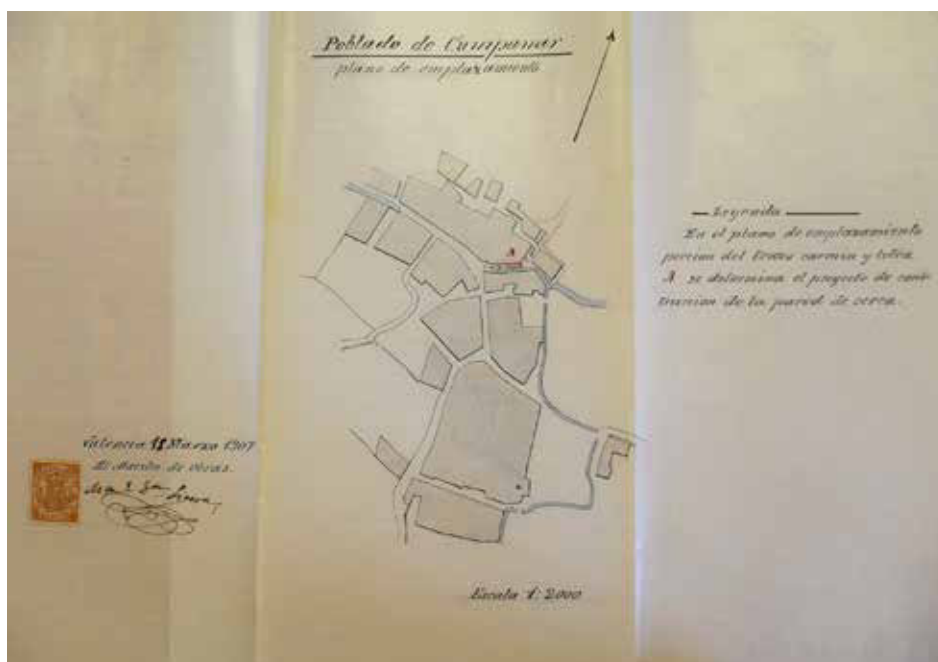 Poblado de Campanar
plano de emplazamiento
A
Leyenda
En el plano de emplazamiento
porcion del trazo carmin y letra
A se determina el proyecto de cons
truccion de la pared de cerca.
Valencia 18 Marzo 1907
El Maestro de obras.
Escala 1:2000